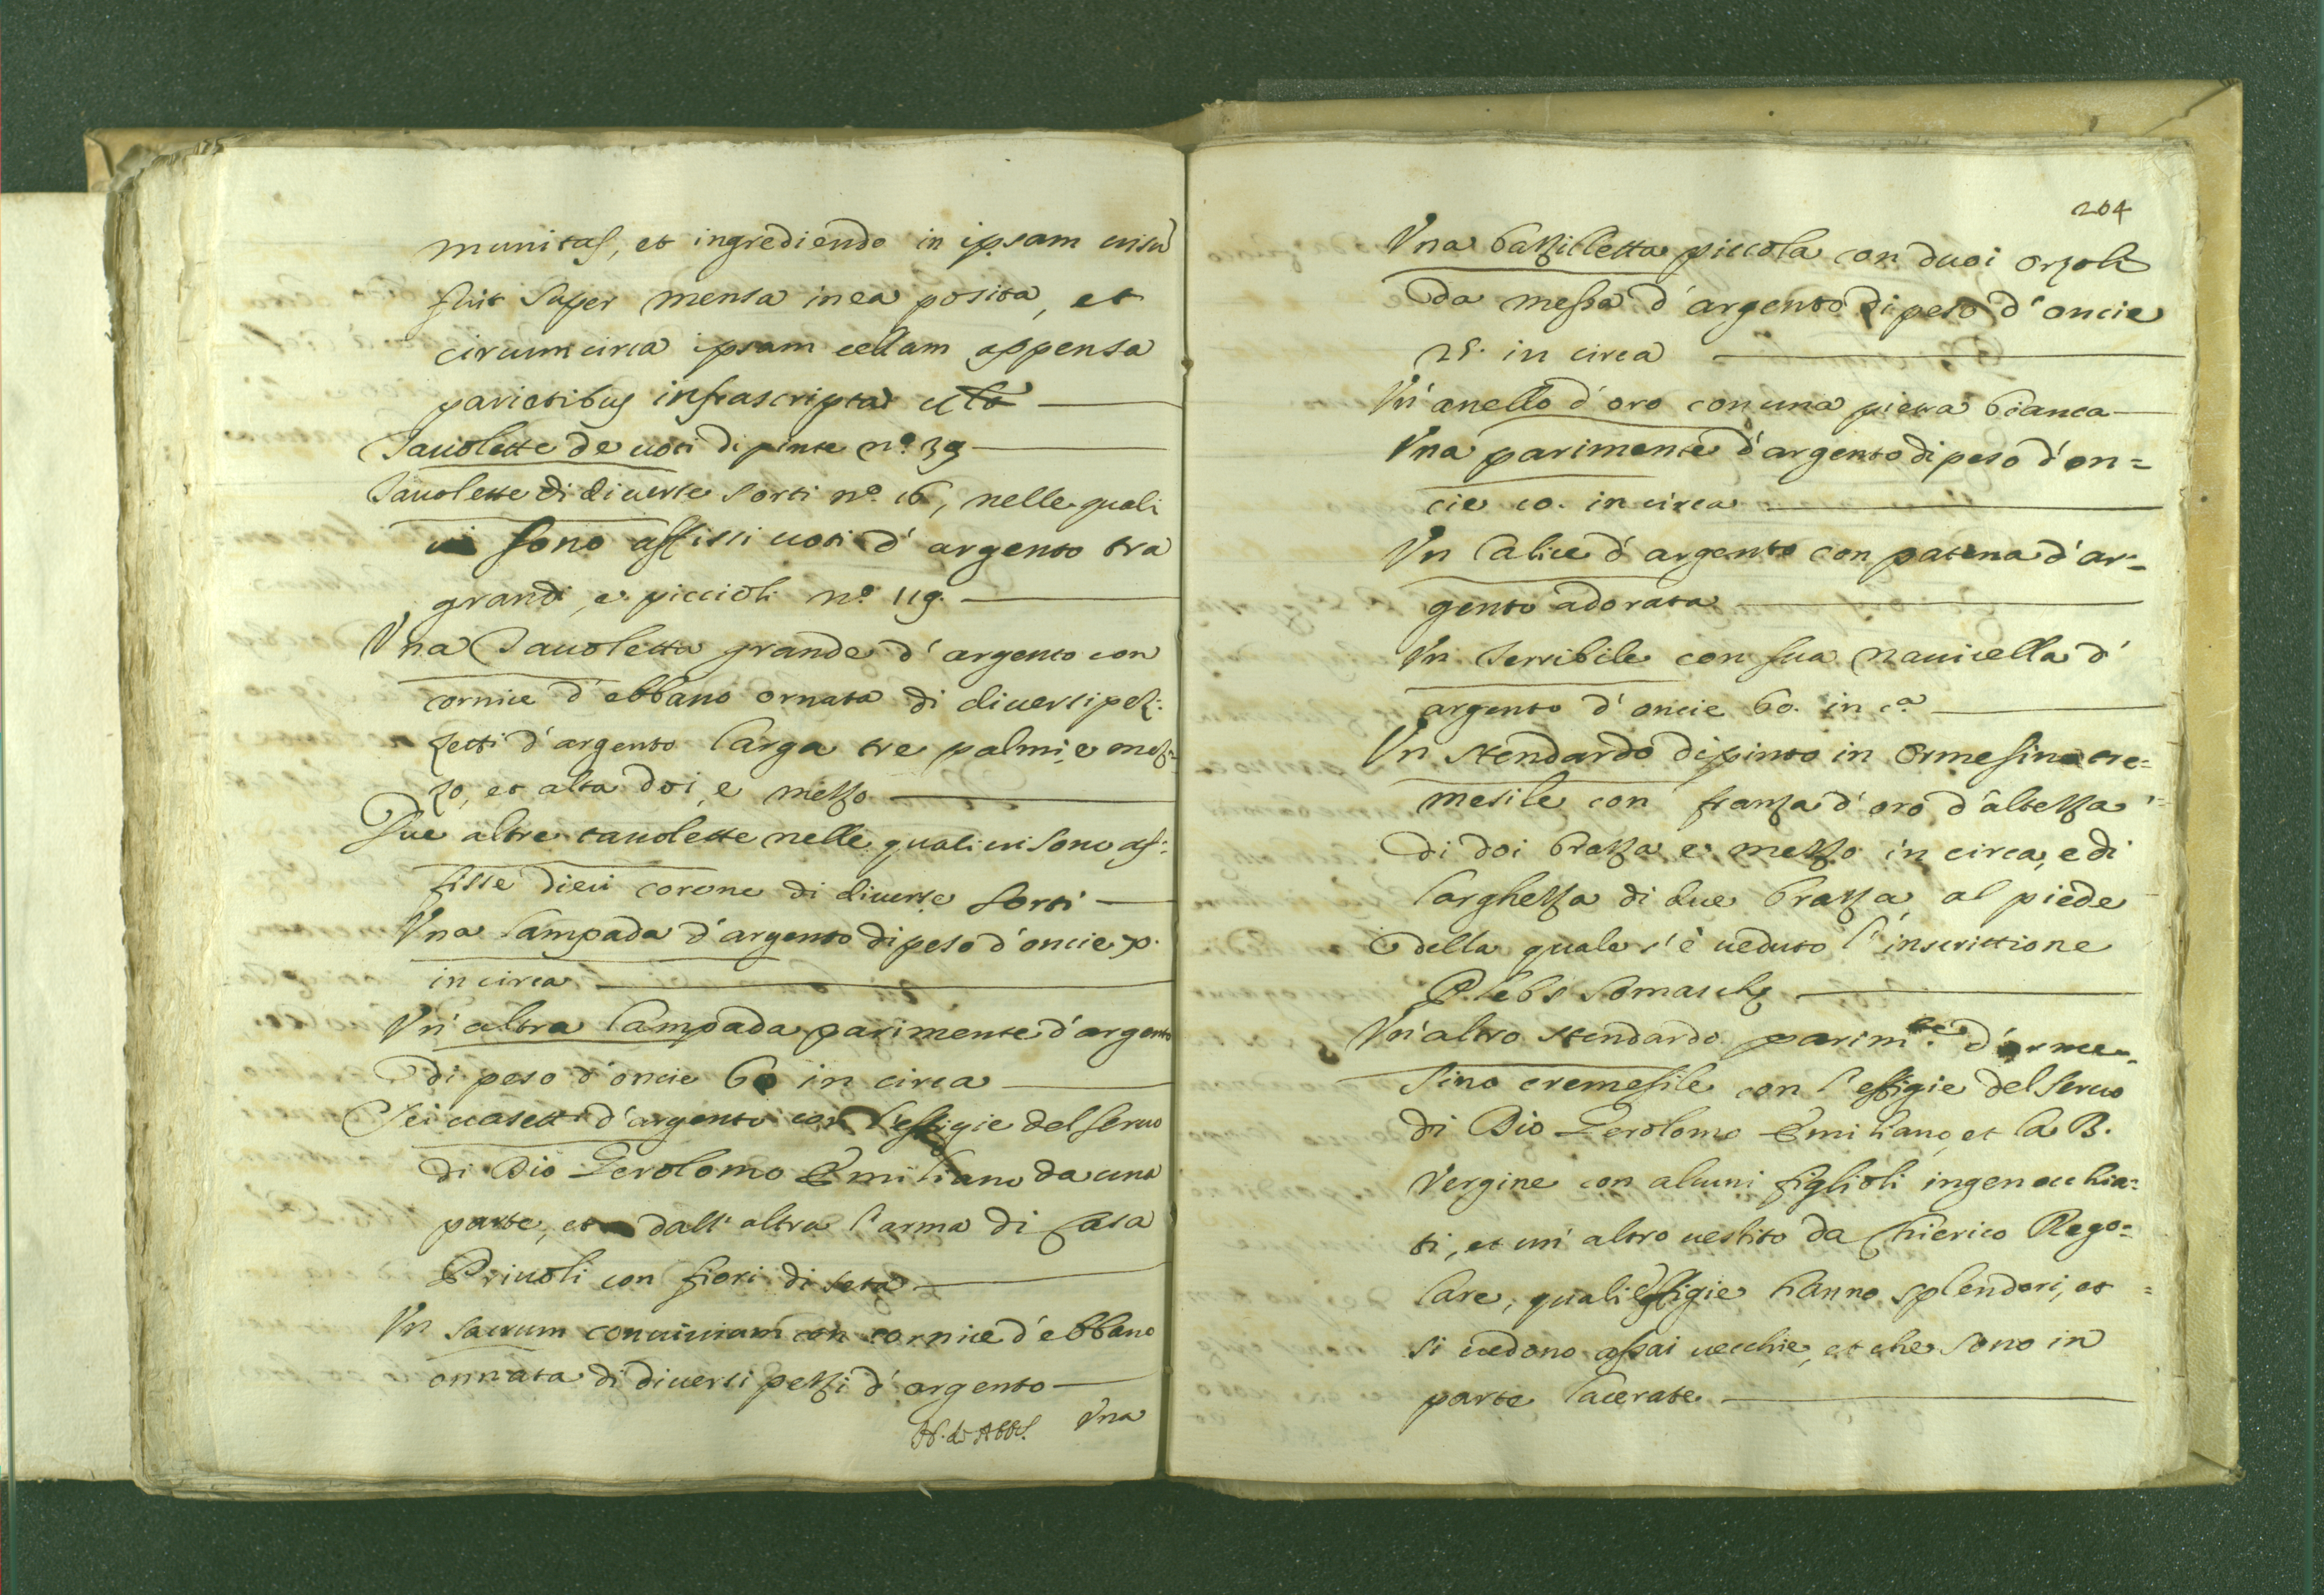 munitas, et ingrediendo in ipsam visũ
fuit super mensa in ea posita, et
circumcirca ipsam cellam appensa
parietibus infrascripta
Tavolette de voti dipinte n.º 39
Tavolette di diverse sorti n.º 16, nelle quali
vi sono affissi voti d'argento tra
grandi, e piccioli n.º 119.
Una Tavoletta grande d'argento con
cornice d'ebbano ornata di diversi pez:
zetti d'argento larga tre palmi, e mez:
zo, et alta doi, e mezzo
Due altre tavolette nelle quali vi sono af:
fisse dieci corone di diverse sorti
Una lampada d'argento di peso d'oncie
in circa
Un'altra lampada parimente d'argento
di peso d'oncie 60 in circa
Sei vasetti d'argento con l'effigie del servo
di Dio Gerolomo Emiliano da una
parte, et dall'altra l'arma di Casa
Priuoli con fiori di seta
Un sacrum convivium con cornice d'ebbano
ornata di diversi pezzi d'argento
Una
204
Una bazziletta piccola con duoi orzoli
da messa d'argento di peso d'oncie
25. in circa
Un'anello d'oro con una pietra bianca
Una parimente d'argento di peso d'on=
cie 10. in circa
Un Calice d'argento con patena d'ar=
gento adorata
Un Terribile con sua navicella d'
argento d'oncie 60. in c.ª
Un stendardo dipinto in ormesino cre=
mesile con franza d'oro d'altezza
di doi brazza e mezzo in circa, e di
larghezza di due brazza, al piede
della quale s'è veduto l'inscrittione
Plebs Somaschę
Un'altro stendardo parim.te d'orme=
sino cremesile con l'effigie del servo
di Dio Gerolomo Emiliano, et la B.
Vergine con alcuni figlioli ingenocchia=
ti, et un'altro vestito da Chierico Rego=
lare, quali effigie hanno splendori, et
si vedono assai vecchie, et che sono in
parte lacerate